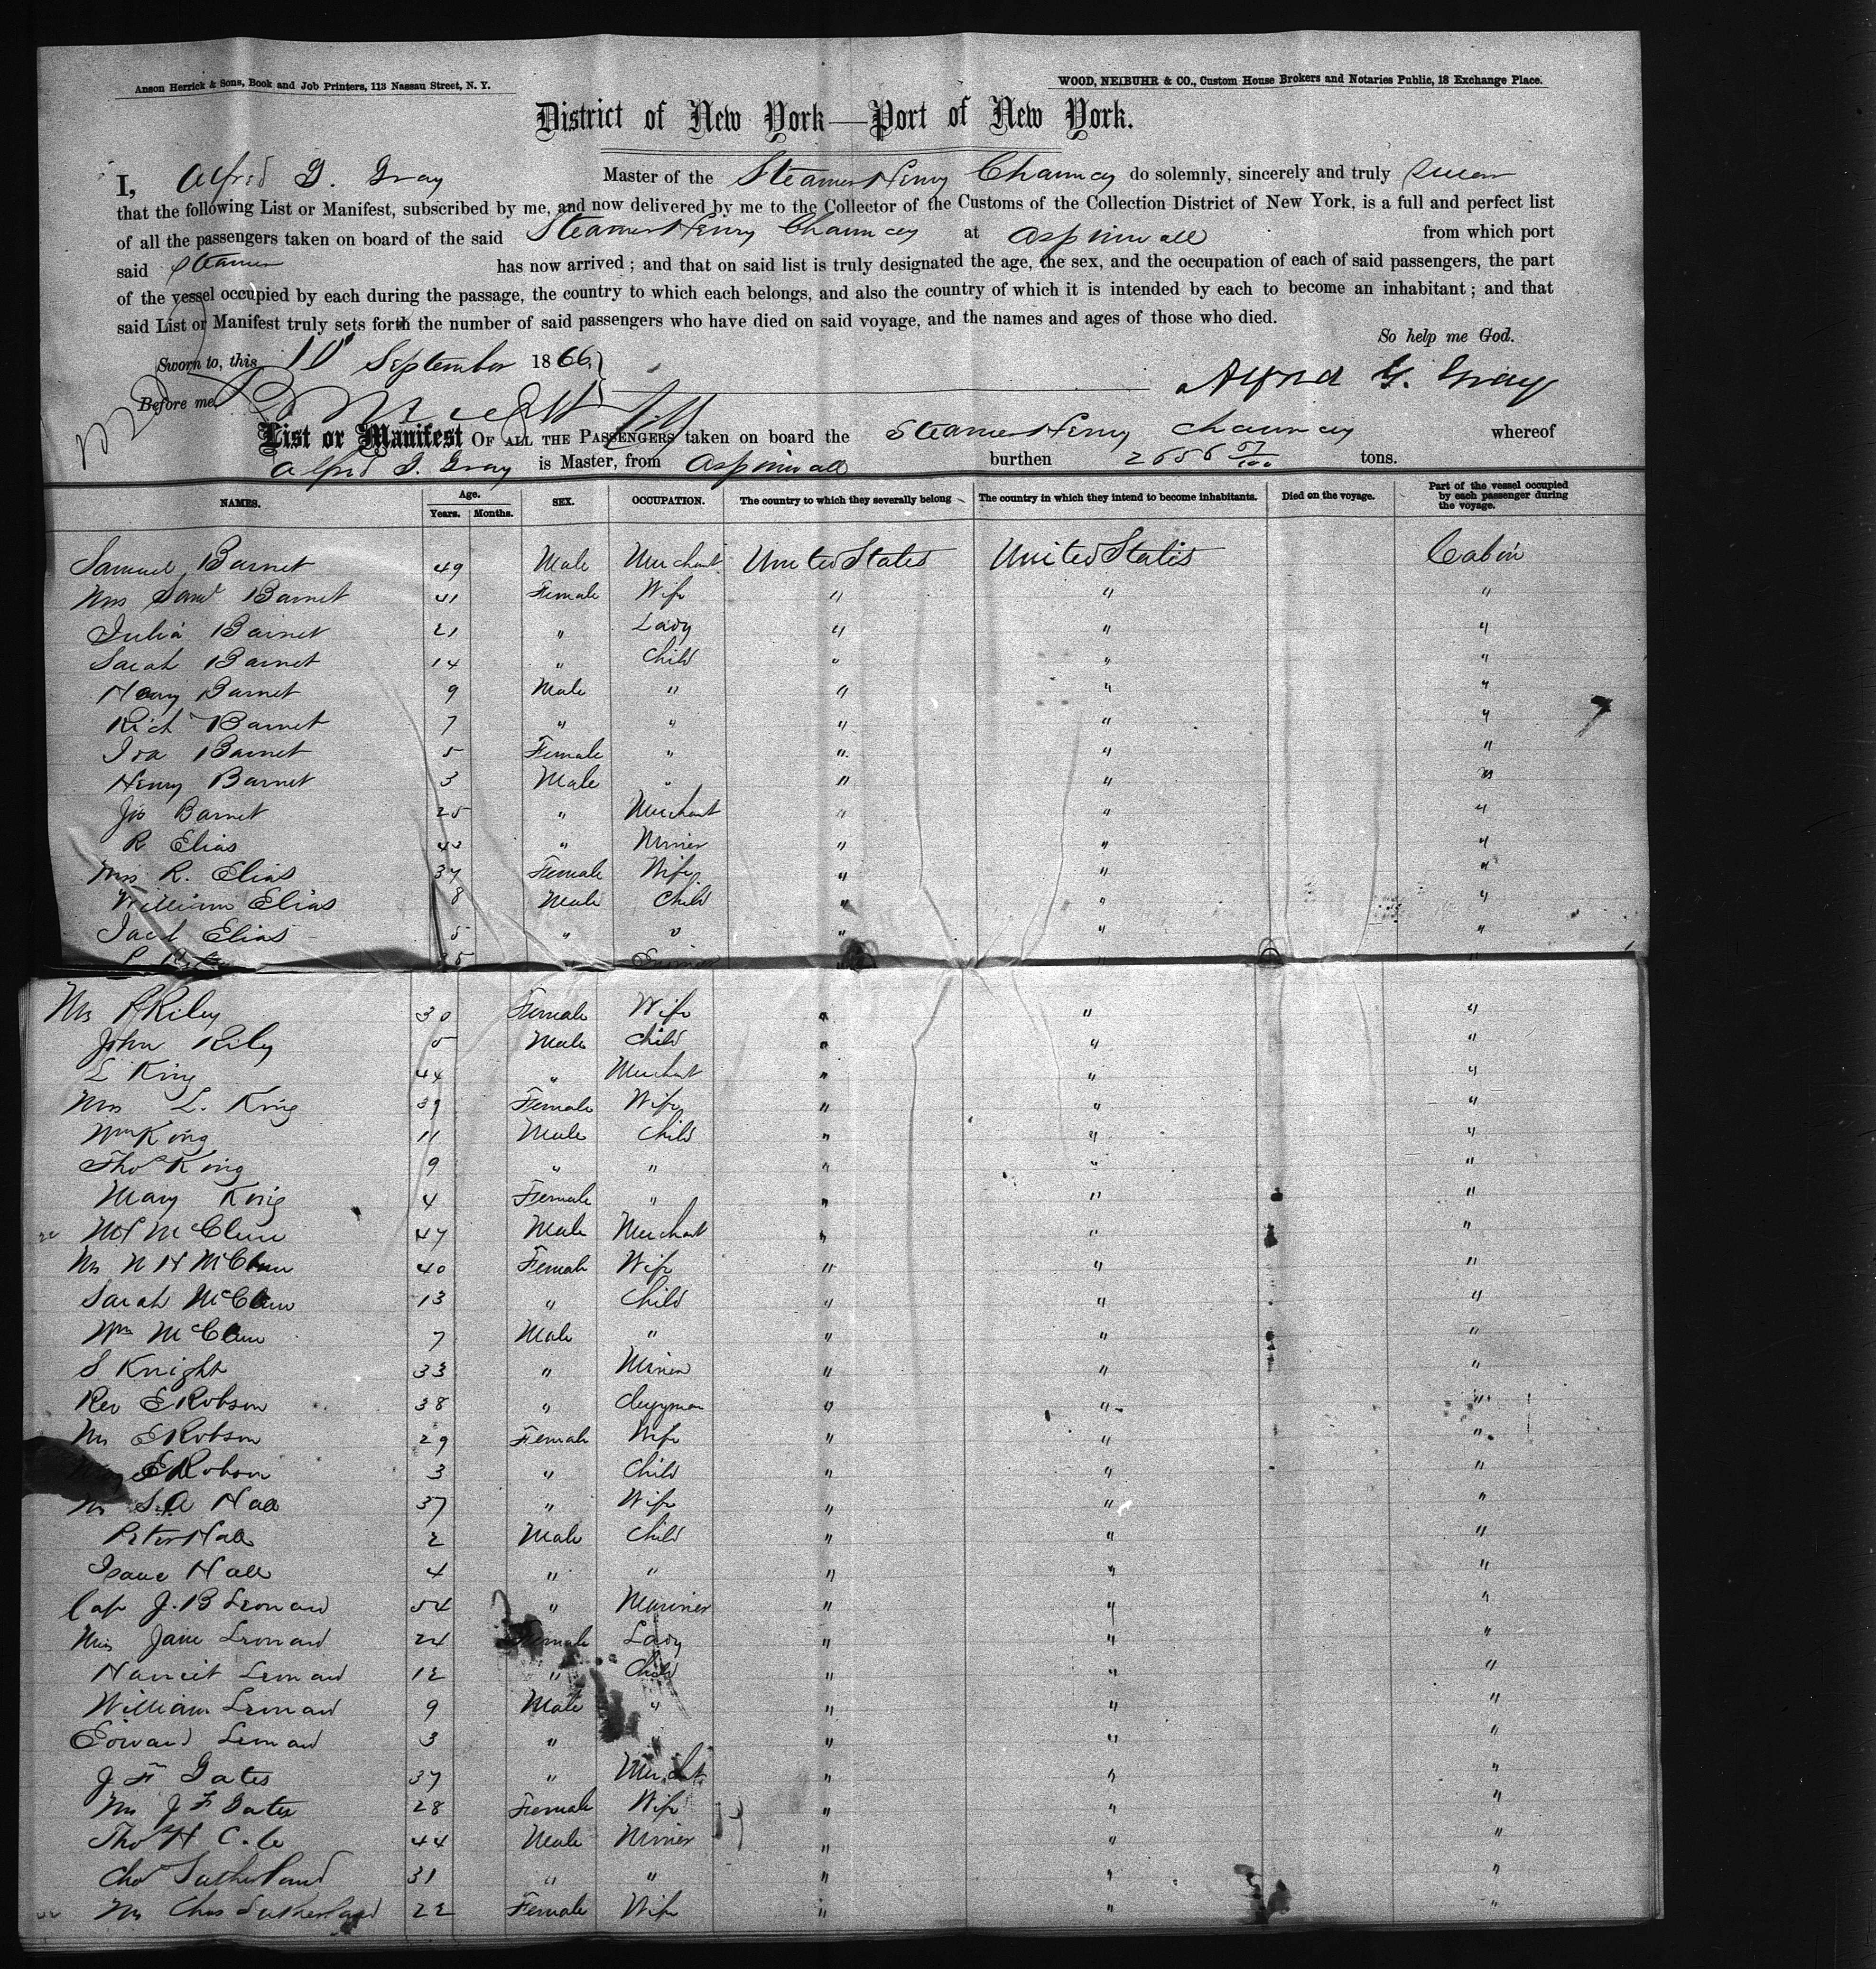 Anson Herrick & Sons, Book and Job Printers, 113 Nassau Street, N. Y.
WOOD, NEIBUHR & CO., Custom House Brokers and Notaries Public, 18 Exchange Place.
District of New York—Port of New York.
I, Alfred G. Gray Master of the Steamer Henry Chauncey do solemnly, sincerely and truly swear
that the following List or Manifest, subscribed by me, and now delivered by me to the Collector of the Customs of the Collection District of New York, is a full and perfect list
of all the passengers taken on board of the said Steamer Henry Chauncey at Aspinwall from which port
said Steamer has now arrived; and that on said list is truly designated the age, the sex, and the occupation of each of said passengers, the part
of the vessel occupied by each during the passage, the country to which each belongs, and also the country of which it is intended by each to become an inhabitant; and that
said List or Manifest truly sets forth the number of said passengers who have died on said voyage, and the names and ages of those who died.
So help me God.
Sworn to, this 10 September 1866
Before me
Alfred G. Gray
List or Manifest OF ALL THE PASSENGERS taken on board the Steamer Henry Chauncey whereof
Alfred G. Gray is Master, from Aspinwall burthen 2656 57/100 tons.
NAMES. Age. Years. Months. SEX. OCCUPATION. The country to which they severally belong The country in which they intend to become inhabitants. Died on the voyage. Part of the vessel occupied by each passenger during the voyage.
Samuel Barnet 49 Male Merchant United States United States Cabin
Mrs Saml Barnet 41 Female Wife " " "
Julia Barnet 21 " Lady " " "
Sarah Barnet 14 " Child " " "
Harry Barnet 9 Male " " " "
Rich Barnet 7 " " " " "
Ida Barnet 5 Female " " " "
Henry Barnet 3 Male " " " "
Jo Barnet 25 " Merchant " " "
R Elias 43 " Miner " " "
Mrs R. Elias 37 Female Wife " " "
William Elias 8 Male Child " " "
Jacob Elias 5 " " " " "
35
Mrs P Riley 30 Female Wife " " "
John Riley 5 Male Child " " "
L King 44 " Merchant " " "
Mrs L. King 39 Female Wife " " "
Wm King 11 Male Child " " "
Thos King 9 " " " " "
Mary King 4 Female " " " "
McClure 47 Male Merchant " " "
Mrs N H McClure 40 Female Wife " " "
Sarah McClure 13 " Child " " "
Wm McClure 7 Male " " " "
S Knight 33 " Miner " " "
Rev E Robson 38 " Clergyman " " "
Mrs E Robson 29 Female Wife " " "
E Robson 3 " Child " " "
Mrs S. A Hall 37 " Wife " " "
Peter Hall 2 Male Child " " "
Isaac Hall 4 " " " " "
Cap J. B Leonard 54 " Mariner " " "
Miss Jane Leonard 24 Female Lady " " "
Harriet Leonard 12 " Child " " "
William Leonard 9 Male " " " "
Edward Leonard 3 " " " "
J F Gates 37 " Merchant " " "
Mrs J F Gates 28 Female Wife " " "
Thos H Cole 44 Male Miner " " "
Chas Sutherland 31 " " " " "
Mrs Chas Sutherland 22 Female Wife " " "